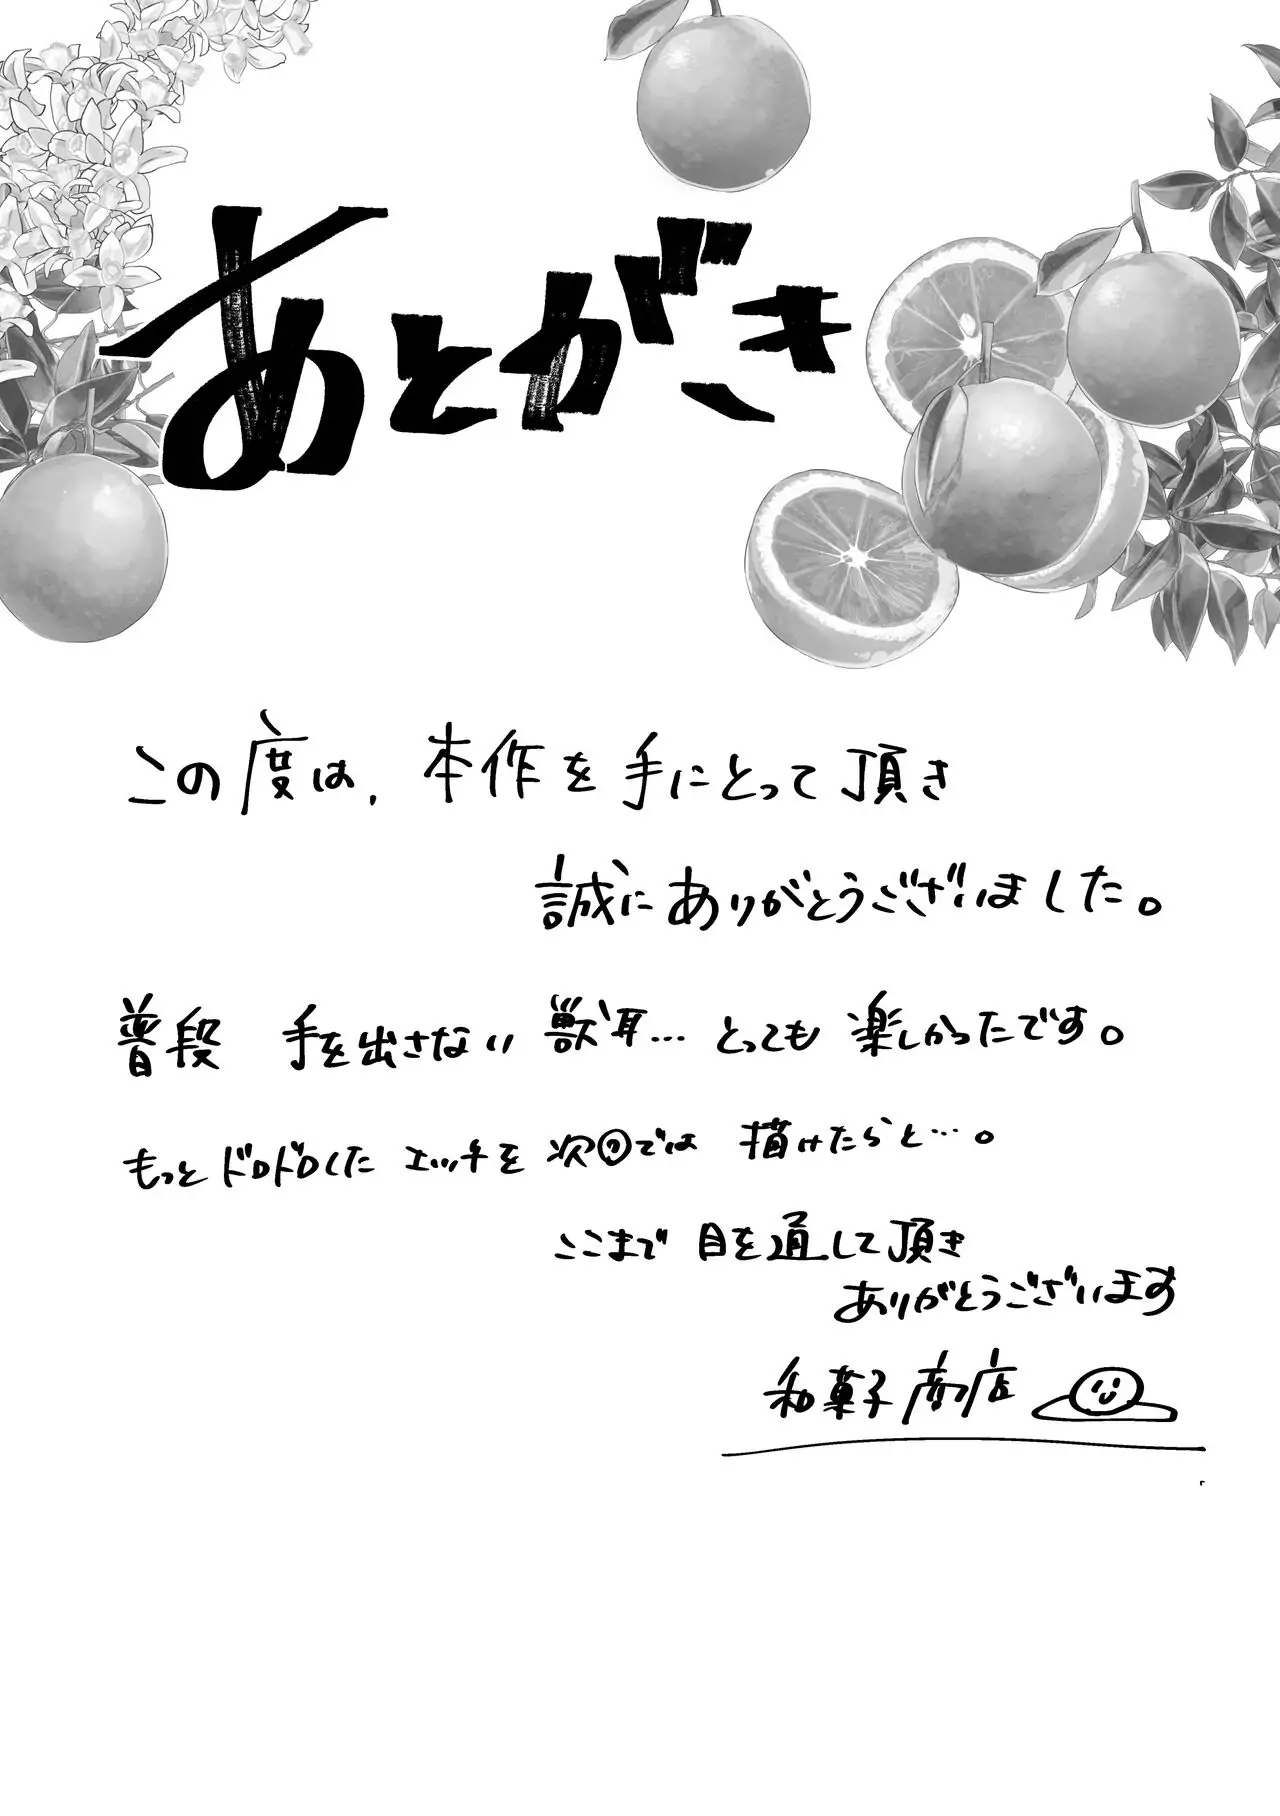 あとがき
この度は、本作を手にとって頂き
誠にありがとうございました。
普段 手を出さない獣耳…とっても楽しかったです。
もっとドロドロした エッチを次回では 描けたらと…。
ここまで 目を通して頂き
ありがとうございます
和菓子商店